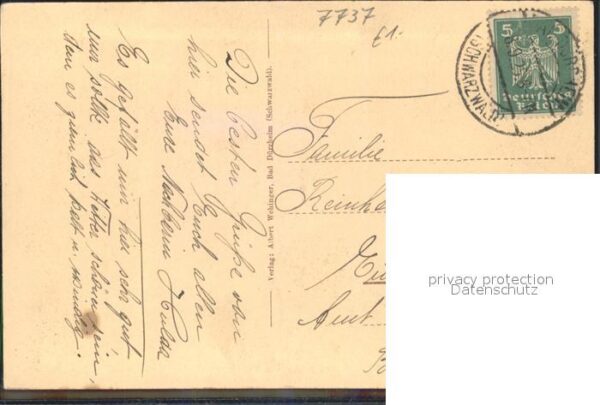 7737
£1.-
5 5
Deutsches
Reich
(SCHWARZWALD)
Die besten Grüße von
hier sendet Euch allen
Eure Nachbarin Hulda
Es gefällt mir hier sehr gut
nur sollte das Wetter schöner sein,
denn es ziemlich kalt u. windig.
Verlag: Albert Wehinger, Bad Dürrheim (Schwarzwald).
Familie
Reinha
Amt
privacy protection
Datenschutz